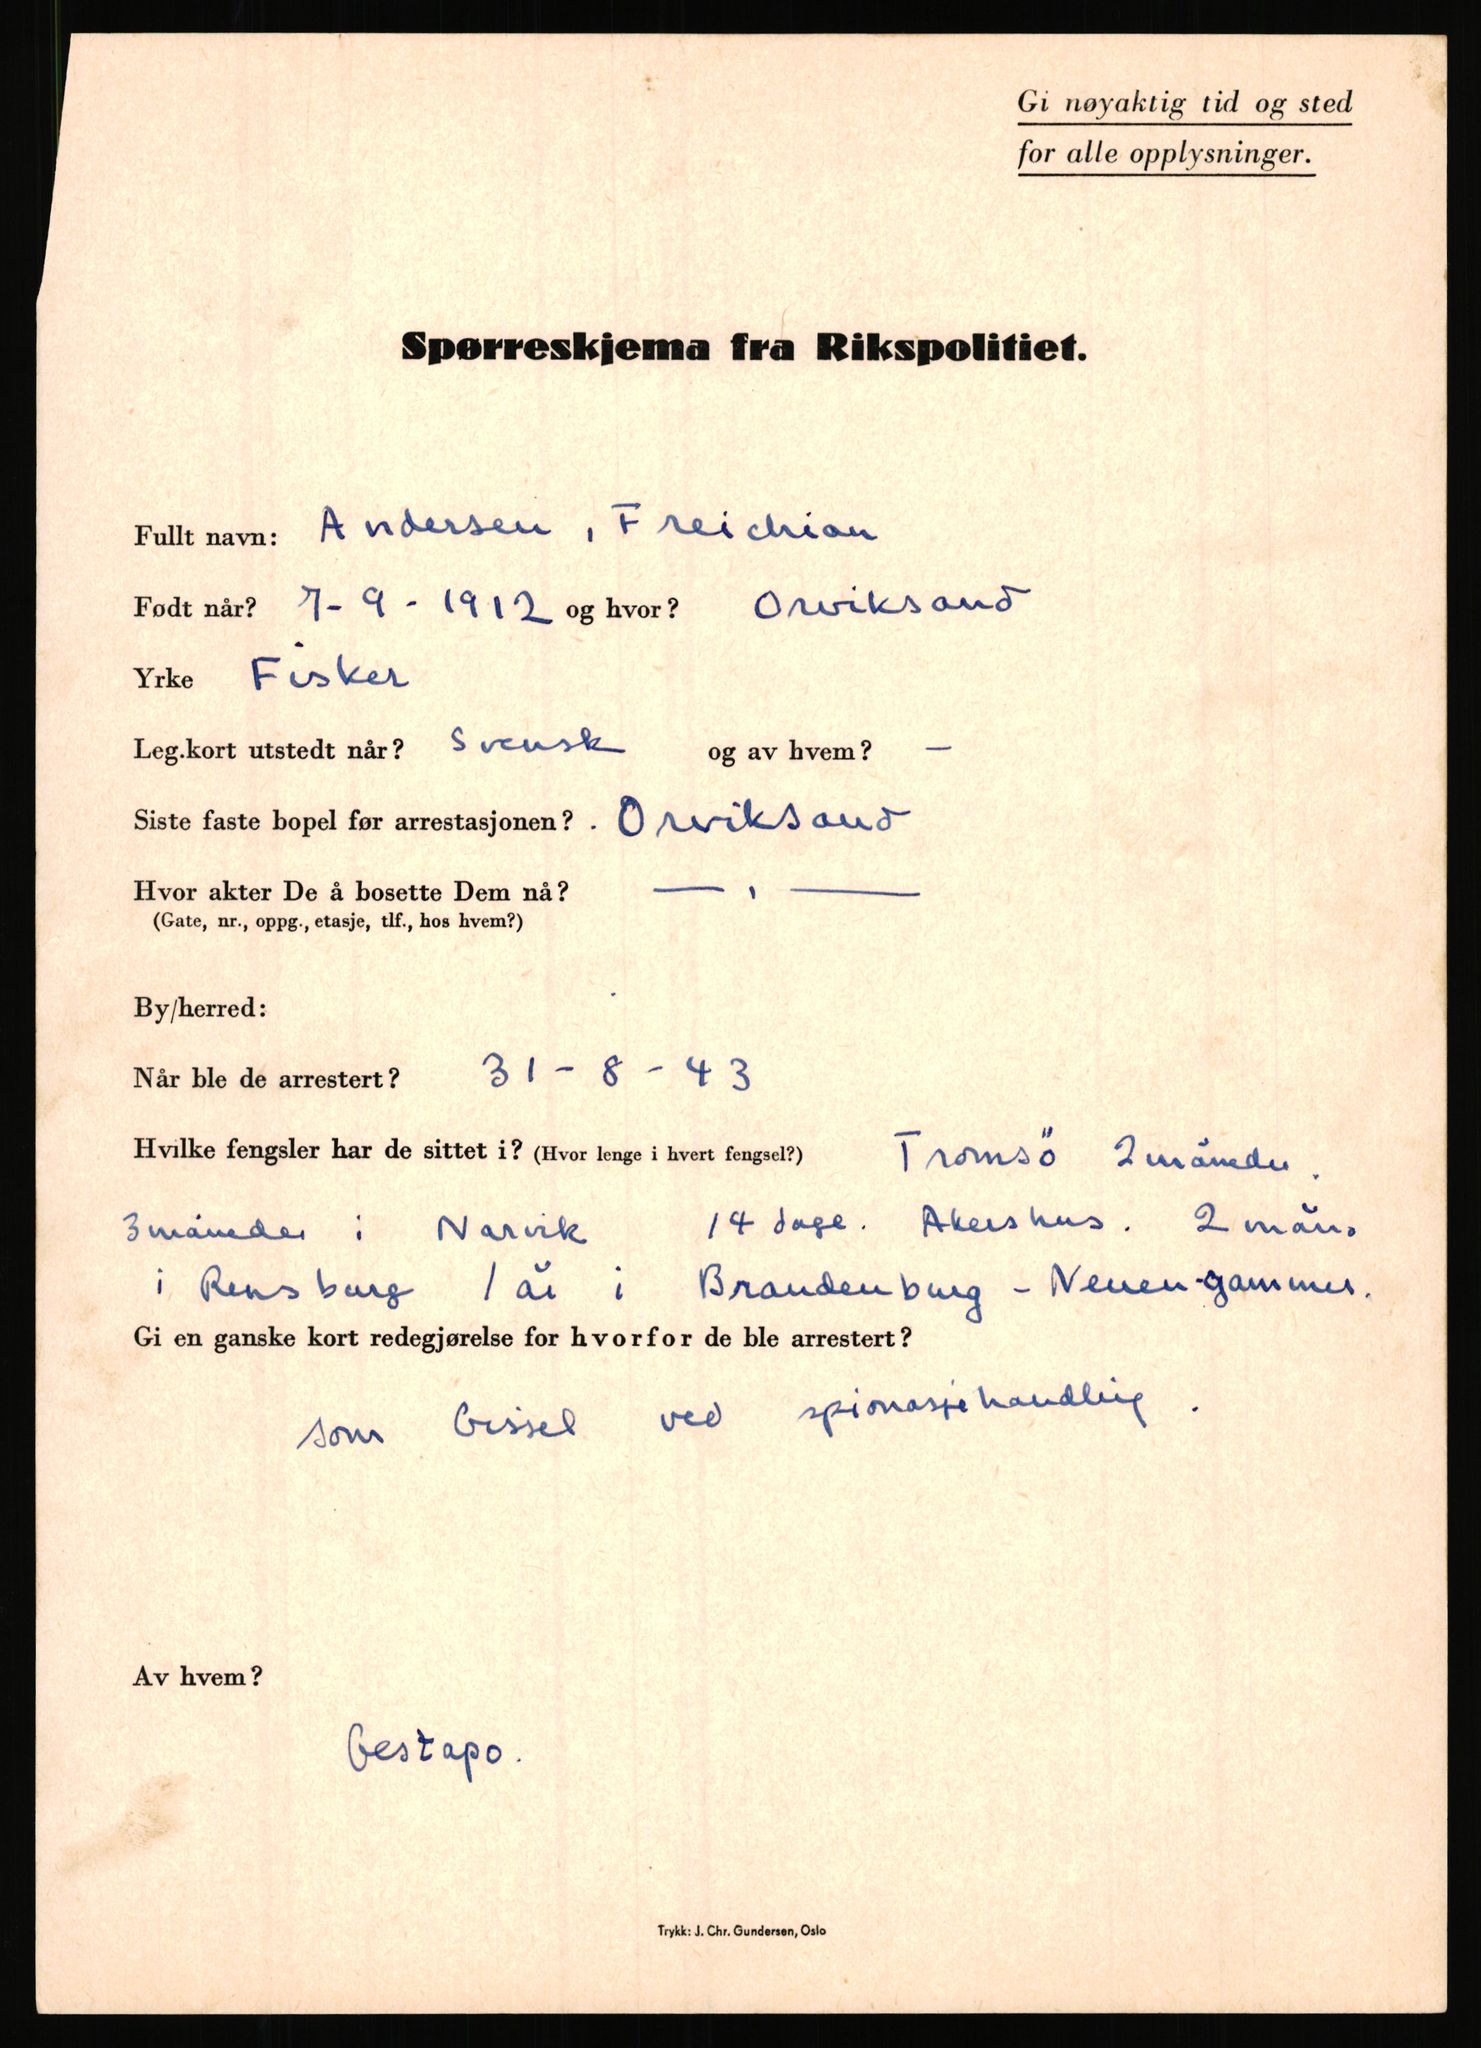 Gi nøyaktig tid og sted
for alle opplysninger.
Spørreskjema fra Rikspolitiet.
Fullt navn: Andersen, Freichian
Født når? 7-9-1912 og hvor? Orviksand
Yrke Fisker
Leg.kort utstedt når? Svensk og av hvem? —
Siste faste bopel før arrestasjonen? . Orviksand
Hvor akter De å bosette Dem nå? — , —
(Gate, nr., oppg., etasje, tlf., hos hvem?)
By/herred:
Når ble de arrestert? 31-8-43
Hvilke fengsler har de sittet i? (Hvor lenge i hvert fengsel?) Tromsö 2 måneder.
3 måneder i Narvik 14 dage. Akershus. 2 mån.
i Rensburg 1 år i Brandenburg - Neuen-gammer.
Gi en ganske kort redegjørelse for hvorfor de ble arrestert?
som Gissel ved spionasjehandling.
Av hvem?
Gestapo.
Trykk: J. Chr. Gundersen, Oslo